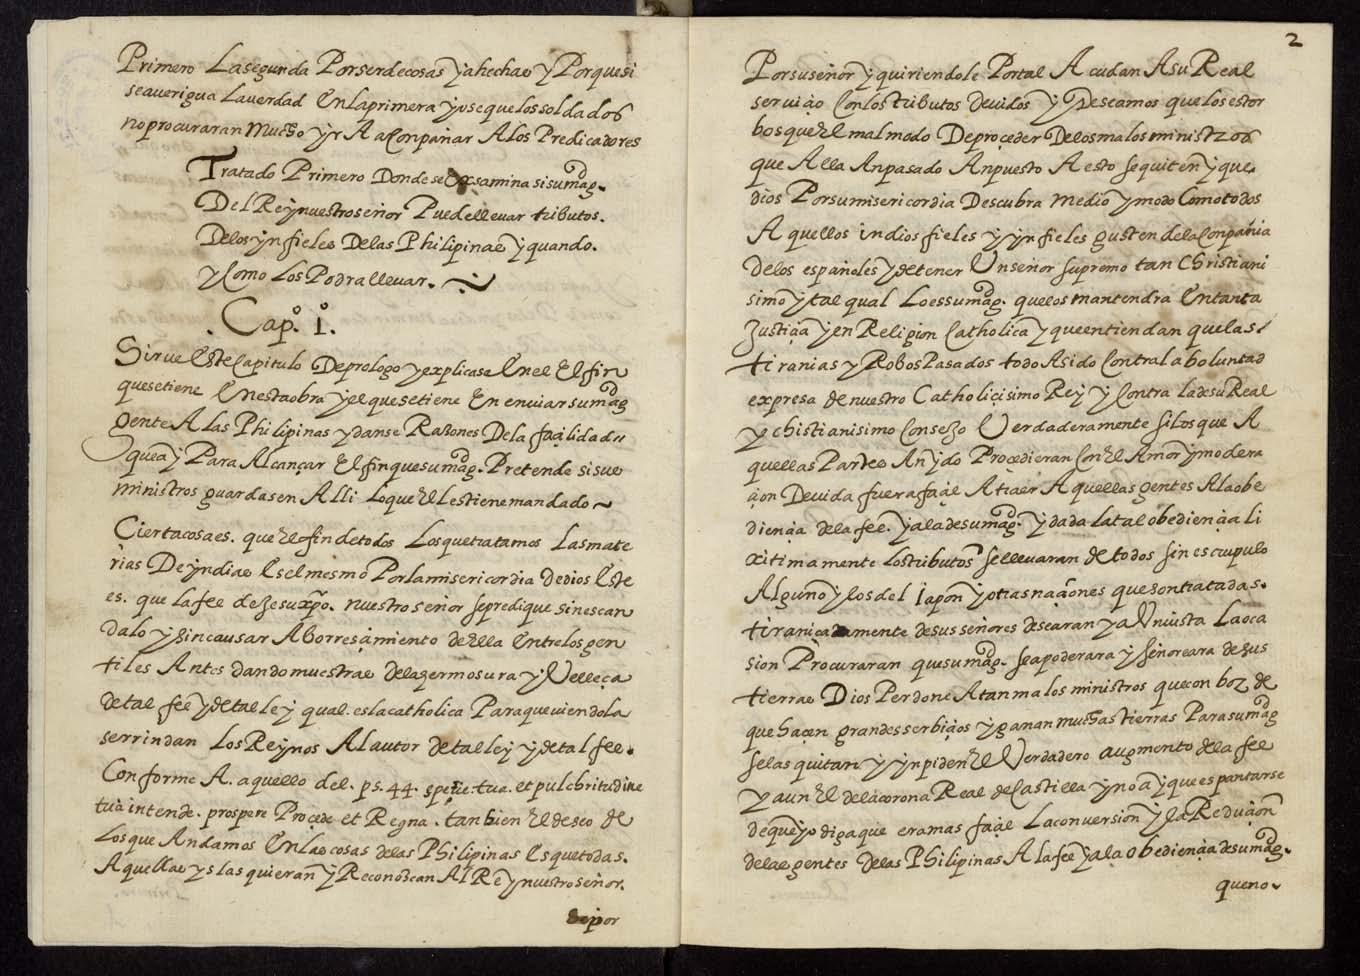 Primero La segunda Por ser de cosas ya hechas y Porque si
se averigua la verdad En la primera yo se que los soldados
no procuraran mucho yr A aConpañar A los Predicadores
Tratado Primero Donde se Exsamina si su mag.
Del Rey nuestro señor Puede llevar tributos.
De los ynfieles De las Philipinas y quando.
y Como Los Podra llevar.
Capº. I.
Sirve Este Capitulo De prologo y explicase En el El fin
que se tiene En esta obra y el que se tiene En enviar su mag
gente A las Philipinas y danse Razones De la façilidad
que ay Para Alcançar El fin que su mag. Pretende si sus
ministros guardasen Alli lo que El les tiene mandado
Cierta cosa es. que El fin de todos Los que tratamos Las mate
rias De yndias Es el mesmo Por la misericordia de dios Este
es. que la fee de Jesuxpo. nuestro señor se predique sin escan
dalo y sin causar Aborresçimiento de Ella Entre los gen
tiles Antes dando muestras de la germosura y Velleça
de tal fee y de tal ley qual. es la catholica Para que viendola
se rrindan Los Reynos Al autor de tal ley y de tal fee.
Conforme A. aquello del. ps. 44. speçie. tua. et pulchritudine
tua intende. prospere Proçede et Regna. tanbien El deseo de
Los que Andamos En las cosas de las Philipinas Es que todas.
Aquellas yslas quieran y Reconozcan Al Rey nuestro señor.
por
2
Por su señor y quiriendole Por tal Acudan A su Real
serviçio Con los tributos devidos y Deseamos que los estor
bos que El mal modo De proçeder De los malos ministros
que Alla An pasado An puesto A esto se quiten y que.
dios Por su misericordia Descubra medio y modo Como todos
Aquellos indios fieles y ynfieles gusten de la Conpañia
De los españoles y de tener Un señor supremo tan Christiani
simo y tal qual Lo es su mag. que los mantendra En tanta
Justiçia y en Religion Catholica y que entiendan que las
tiranias y Robos Pasados todo A sido Contra la boluntad
expresa de nuestro Catholicisimo Rey y Contra la de su Real
y chistianisimo Consejo Verdaderamente si los que A
quellas Partes An ydo Proçedieran Con El Amor y modera
çion Devida fuera façil Atraer Aquellas gentes A la obe
diençia de la fee. y a la de su mag. y dada la tal obediençia li
xitimamente Los tributos se llevaran de todos sin escrupulo
Alguno y los del Iapon y otras naçiones que son tratadas.
tiranicamente de sus señores desearan ya Vniusta La oca
sion Procuraran que su mag. se apoderara y señoreara de sus
tierras Dios Perdone A tan malos ministros que con boz de
que haçen grandes serbiçios y ganan muchas tierras Para su mag
se las quitan y ynpiden El Verdadero augmento de la fee
y aun El de la corona Real de Castilla y no ay que espantarse
de que yo diga que era mas façil La conversion y la Reduçion
de las gentes de las Philipinas A la fee y a la obediençia de su mag.
que no